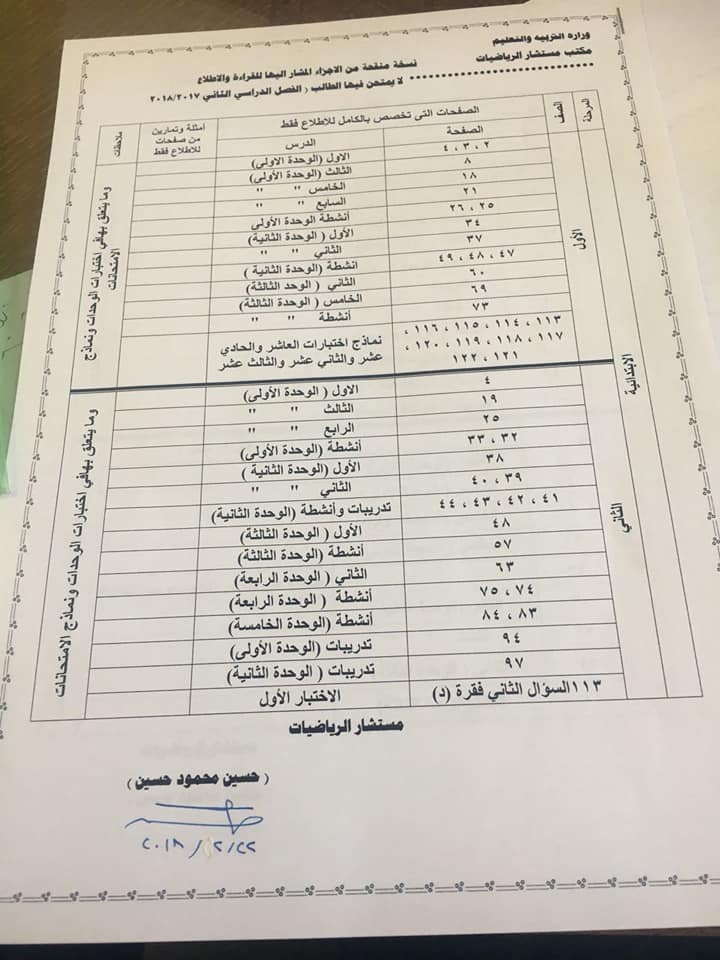 وزارة التربية والتعليم
مكتب مستشار الرياضيات
نسخة منقحة من الاجزاء المشار اليها للقراءة والاطلاع
لا يمتحن فيها الطالب ( الفصل الدراسي الثاني ٢٠١٨/٢٠١٧
المرحلة الصف الصفحات التى تخصص بالكامل للاطلاع فقط أمثلة وتمارين من صفحات للاطلاع فقط ملاحظات
الصفحة الدرس
الابتدائية
الأول
٢ ، ٣ ، ٤
٨ الاول (الوحدة الاولى)
١٨ الثالث (الوحدة الأولى)
٢١ الخامس " "
٢٥ ، ٢٦ السابع " "
٣٤ أنشطة الوحدة الأولى
٣٧ الأول ( الوحدة الثانية)
٤٧ ، ٤٨ ، ٤٩ الثاني " "
٦٠ انشطة (الوحدة الثانية )
٦٩ الثاني ( الوحد الثالثة)
٧٣ الخامس ( الوحدة الثالثة)
أنشطة " "
١١٣ ، ١١٤ ، ١١٥ ، ١١٦ ، نماذج اختبارات العاشر والحادي
١١٧ ، ١١٨ ، ١١٩ ، ١٢٠ ، عشر والثاني عشر والثالث عشر
١٢١ ، ١٢٢
وما يتعلق بهافي اختبارات الوحدات ونماذج الامتحانات
الثاني
٤ الاول ( الوحدة الأولى)
١٩ الثالث " "
٢٥ الرابع " "
٣٢ ، ٣٣ أنشطة (الوحدة الأولى)
٣٨ الأول (الوحدة الثانية )
٣٩ ، ٤٠ الثاني " "
٤١ ، ٤٢ ، ٤٣ ، ٤٤ تدريبات وأنشطة (الوحدة الثانية)
٤٨ الأول ( الوحدة الثالثة)
٥٧ أنشطة (الوحدة الثالثة)
٦٣ الثاني ( الوحدة الرابعة)
٧٤ ، ٧٥ أنشطة ( الوحدة الرابعة)
٨٣ ، ٨٤ أنشطة (الوحدة الخامسة)
٩٤ تدريبات (الوحدة الأولى)
٩٧ تدريبات ( الوحدة الثانية)
١١٣السؤال الثاني فقرة (د) الاختبار الأول
وما يتعلق بهافي اختبارات الوحدات ونماذج الامتحانات
مستشار الرياضيات
( حسين محمود حسين )
٢٠١٨/٢/٢٢